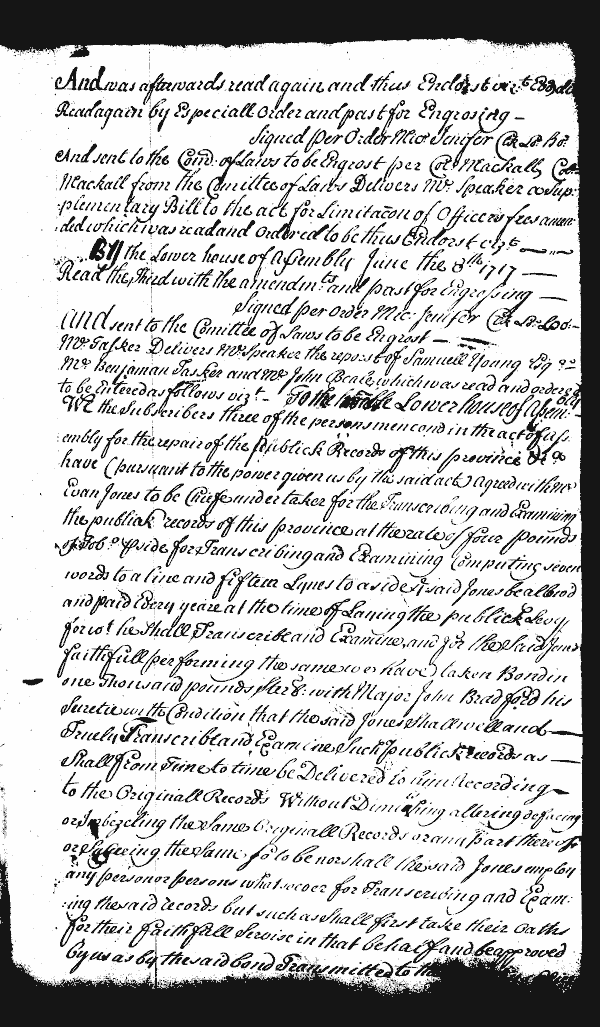 And was afterwards read again and thus Endorst vizt
Read again by Especiall order and past for Engrosing —
Signed per Order Mics Jenifer Clk Lr Ho.
And sent to the Comd. of Laws to be Engrost per Col Mackall, Col
Mackall from the Comittee of Laws Delivers Mr Speaker a Sup-
plementary Bill to the act for Limitacon of Officers fees amen
ded which was read and ordered to be thus Endorst vizt
By the Lower house of assembly June the 8th 1717 —
Read the third with the amendmts and past for Engrossing —
Signed per Order Mic. Jenifer Clk Lr Hoo:-
And sent to the Comittee of Laws to be Engrost —
Mr Tasker Delivers Mr Speaker the report of Samuell Young Esqr
Mr Benjaman Tasker and Mr John Beale, which was read and ordered
to be Entered as follows vizt - To the Lower house of Assem-
We the Subscribers three of the persons mencond in the act of ass
embly for the repair of the publick Records of this province
have (pursuant to the power given us by the said act) agreed with mr
Evan Jones to be Chiefe undertaker for the Transcribing and Examining
the publick records of this province at the rate of four pounds
of Tobo. pside for Transcribing and Examining Computing seven
words to a line and fifteen Lynes to a side sd said Jones be allowd
and paid Every yeare at the time of Laying the publick Levy
for wt. he shall Transcribe and Examine, and for the said Jones
faithfull performing the same wee have taken Bond in
one Thousand pounds Sterg. with Major John Bradford his
Suretie with Condition that the said Jones shall well and —
Truely Transcribe and Examine Such publick records as —
Shall from Time to time be Delivered to him According —
to the Originall Records Without Diminishing altering defacing
or Imbezeling the Same Originall Records or any part thereof
or Suffering the Same so to be nor shall the said Jones employ
any person or persons whatsoever for Transcribing and Exam:
ing the said records but such as shall first take their oaths
for their faithfull Servise in that behalf and be approved
by us as by the said bond Transmitted to the